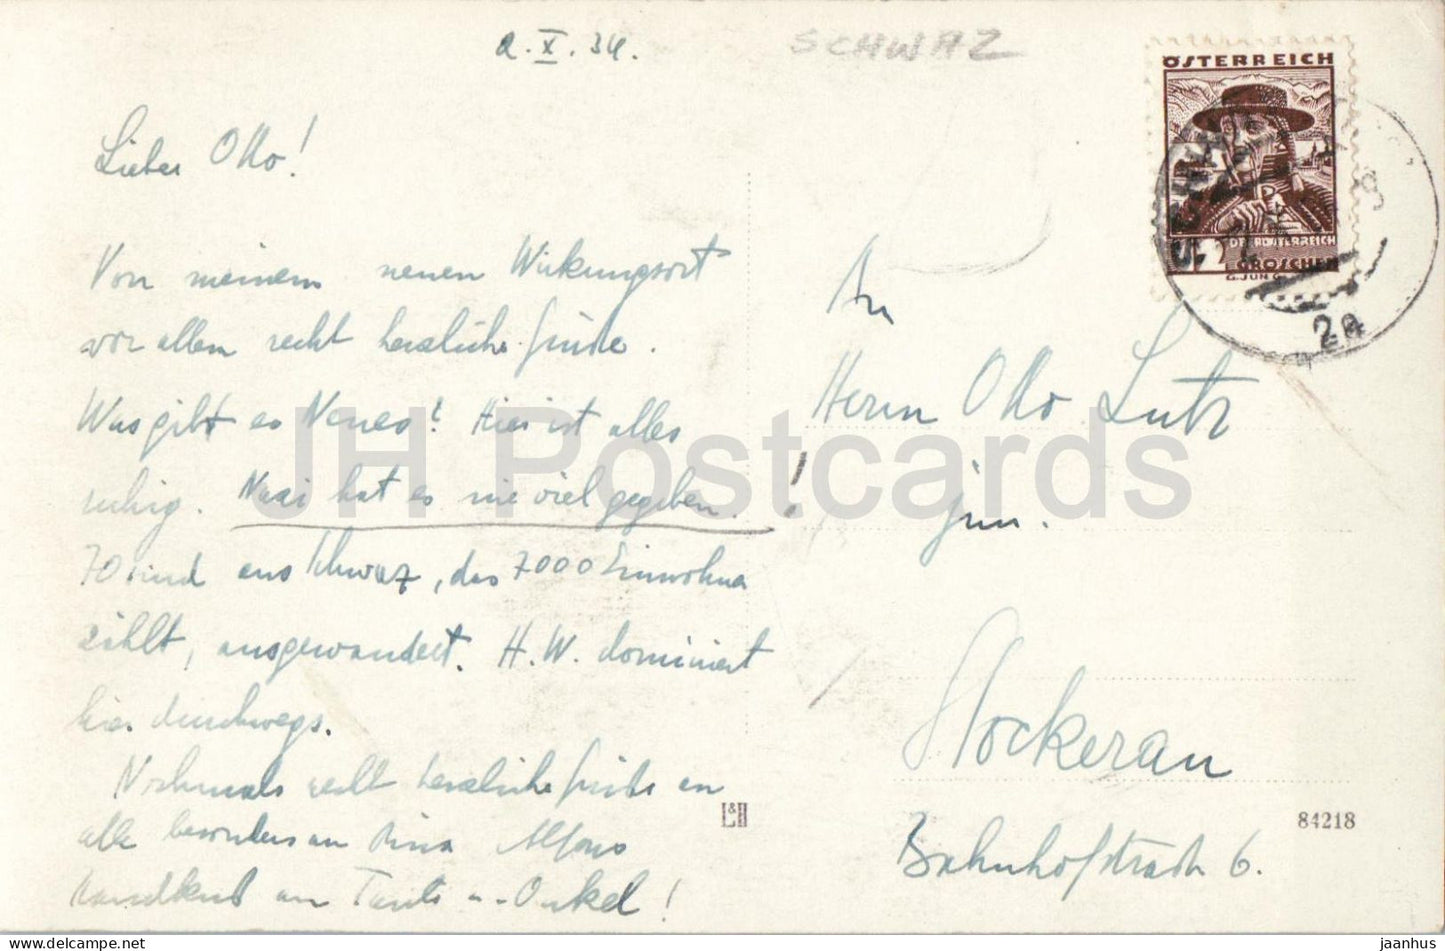 2.X.34.
SCHWAZ
Lieber Otto!
Von meinem neuen Wirkungsort
vor allem recht herzliche Grüße.
Was gibt es Neues? Hier ist alles
ruhig. Nazi hat es nie viel gegeben.
70 sind aus Schwaz, das 7000 Einwohner
zählt, ausgewandert. H.W. dominiert
hier durchwegs.
Nochmals recht herzliche Grüße an
alle besonders an Alfons
Handkuß an Tante u. Onkel!
ÖSTERREICH
GROSCHEN
SCHWAZ
2a
An
Herrn Otto Lutz
jun.
Stockerau
Bahnhofstraße 6.
L&H
84218
JH Postcards
delcampe.net
jaanhus